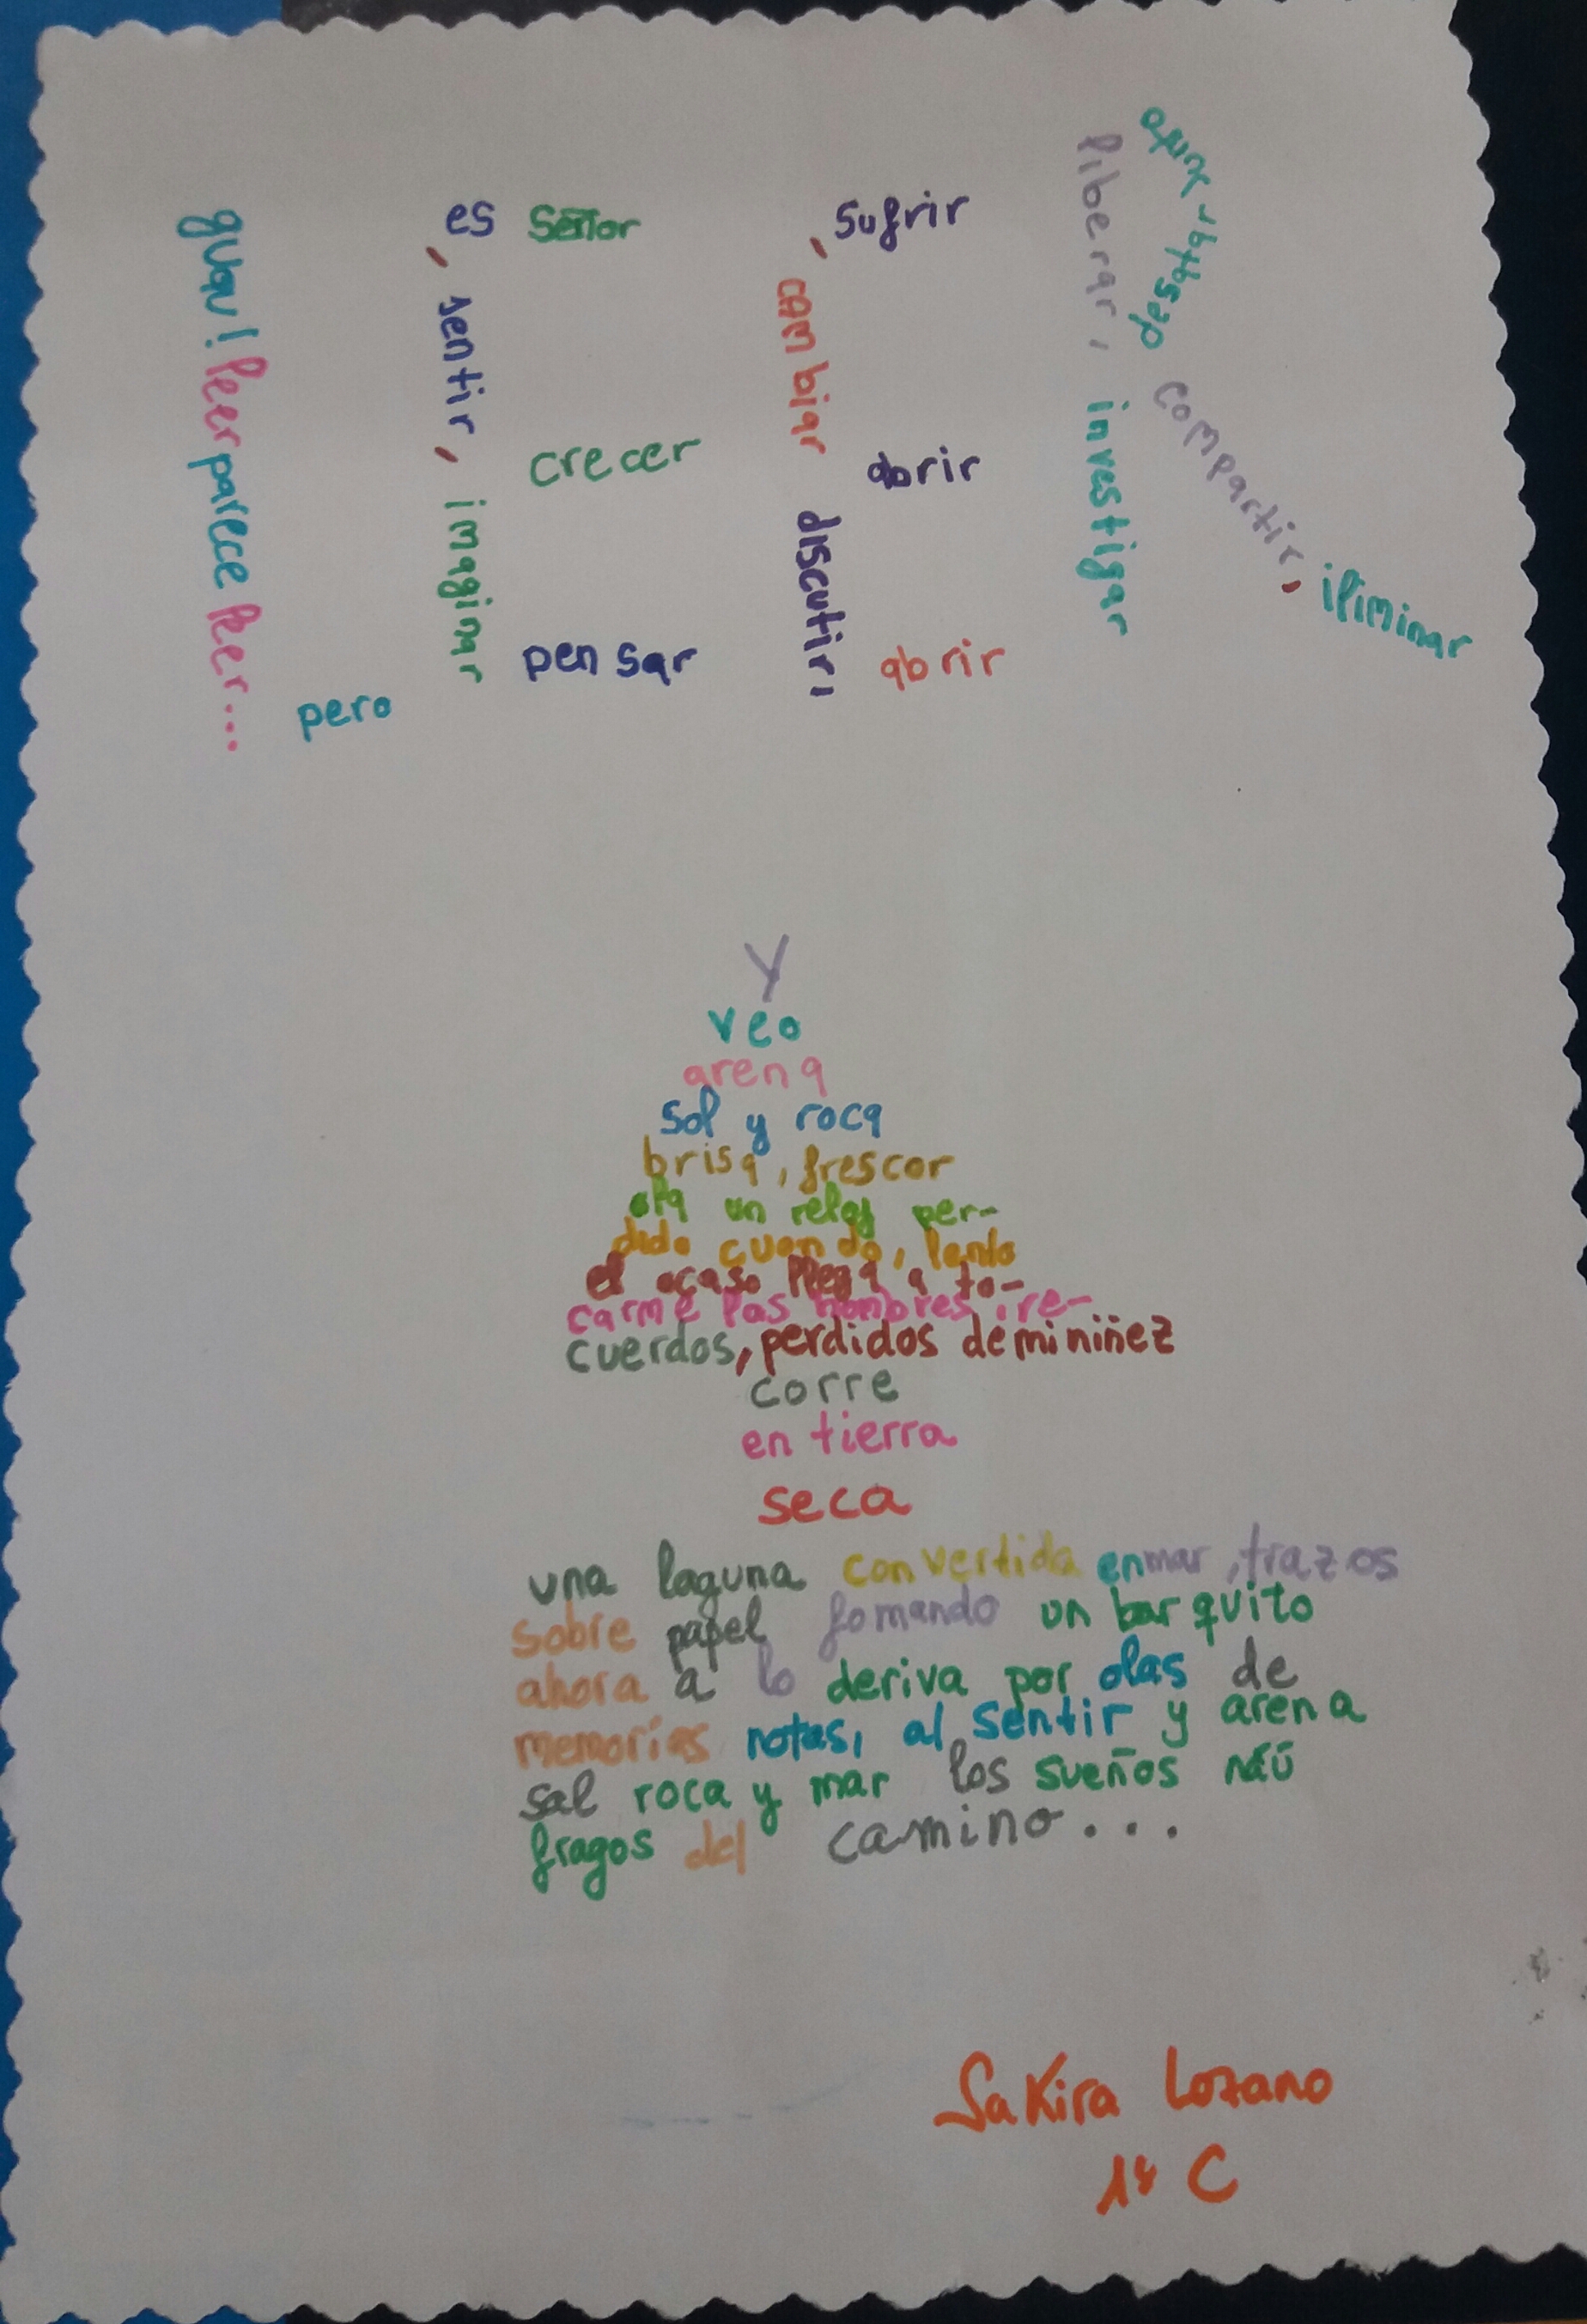 guau! leer parece leer...
pero
es señor
, sentir, imaginar
crecer
pensar
, sufrir
cambiar
abrir
discutir,
abrir
liberar, investigar
despertar
compartir, iliminar
Y
veo
arena
sol y roca
brisa, frescor
ola un reloj per-
dido cuando, lento
el ocaso llega a to-
carme las hombres, re-
cuerdos, perdidos de mi niñez
corre
en tierra
seca
una laguna convertida en mar, trazos
sobre papel fomando un barquito
ahora a lo deriva por olas de
memorias notas, al sentir y arena
sal roca y mar los sueños náu
fragos del camino...
Sakira Lozano
1º C